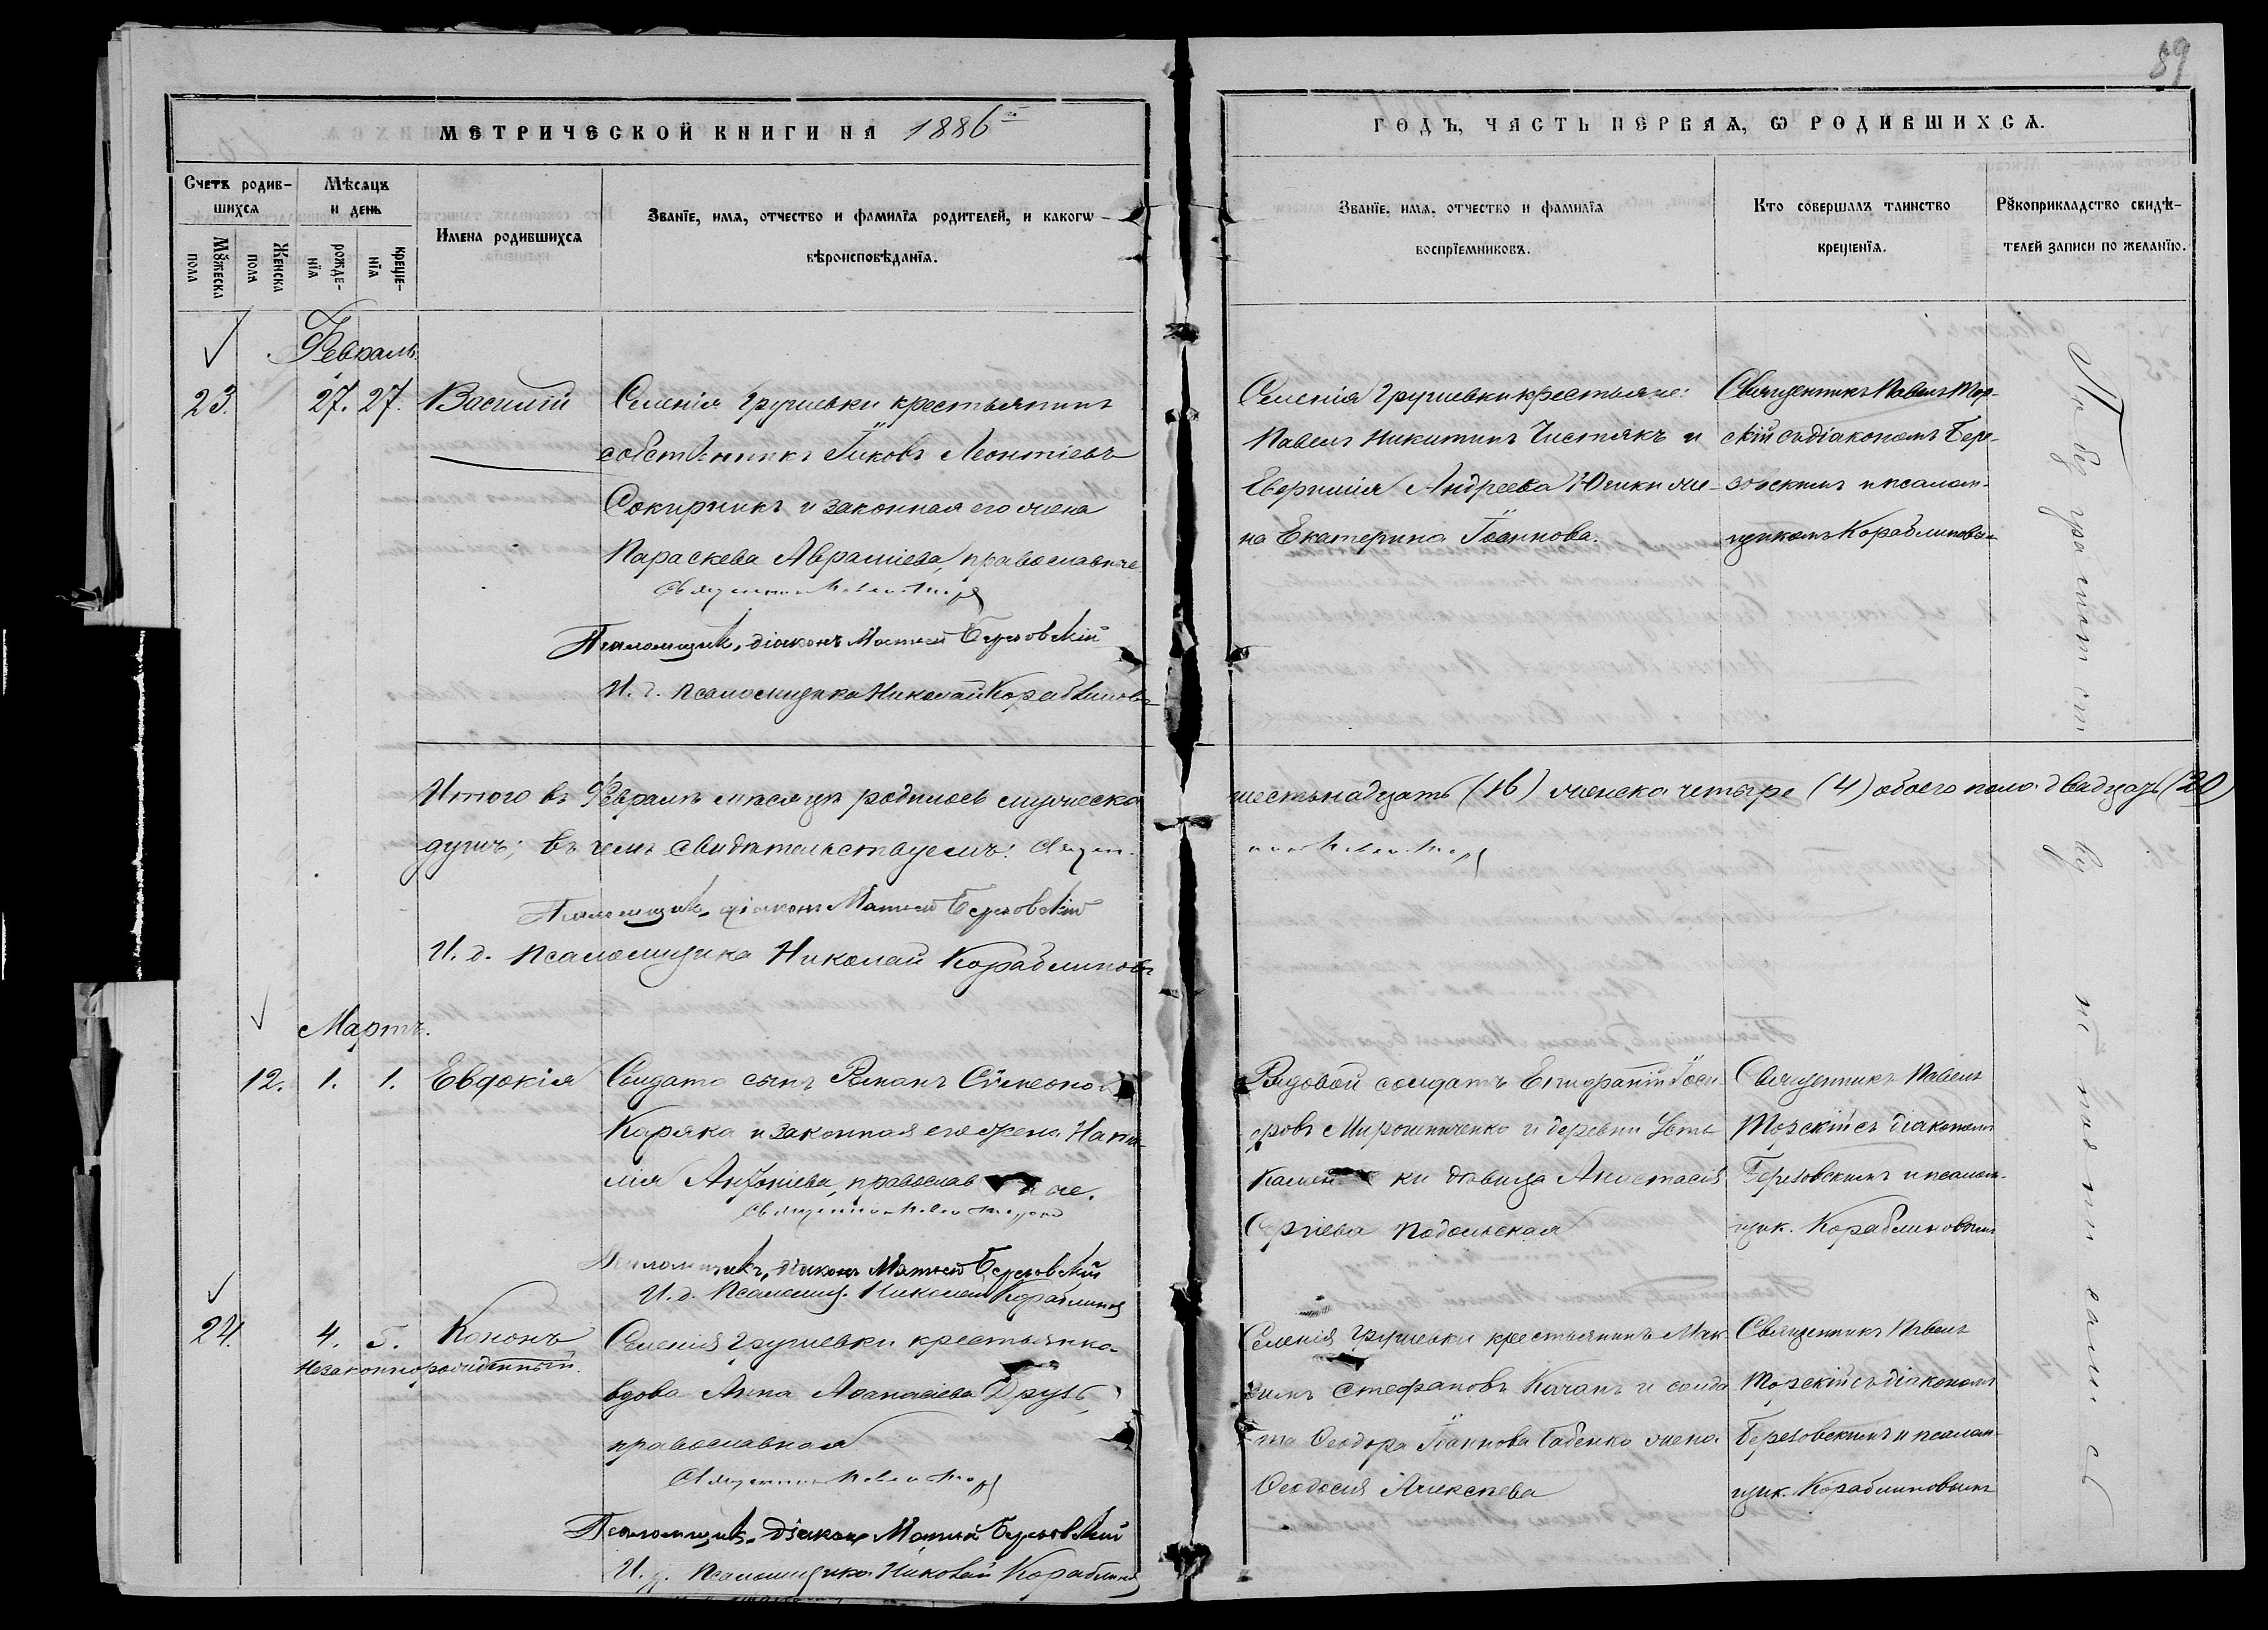 89
МЕТРИЧЕСКОЙ КНИГИ НА 1886
ГОДЪ, ЧАСТЬ ПЕРВАЯ, Ѡ РОДИВШИХСѦ.
Счетъ родив-
шихсѧ
Мꙋжеска
пола
Женска
пола
Мѣсѧцъ
и день
рожде-
нїѧ
креще-
нїѧ
Имена родившихсѧ
Званїе, имѧ, отчество и фамилїѧ родителей, и какогѡ
вѣроисповѣданїѧ.
Званїе, имѧ, отчество и фамилїѧ
воспрїемниковъ.
Кто совершалъ таинство
крещенїѧ.
Рꙋкоприкладство свидѣ-
телей записи по желанїю.
Февраль
23. 27. 27. Василій
Селенія Грушевки крестьянинъ
собственникъ Іаковъ Леонтіевъ
Сокирникъ и законная его жена
Параскева Авраміева, православные
Псаломщикъ, діаконъ Матѳей Березовскій
И. д. псаломщика Николай Кораблиновъ
Селенія Грушевки крестьяне:
Павелъ Никитинъ Чистякъ и
Андреева
на Екатерина Іоаннова.
Священникъ Павелъ Мор-
скій съ діакономъ Бере-
зовскимъ и псалом-
щикомъ Кораблиновым
Итого въ Февралѣ мѣсяцѣ родилось мужеска
шестьнадцать (16) женска четыре (4) обоего пола двадцать (20)
душъ; въ чемъ свидѣтельствуемъ: Священ-
Псаломщикъ, діаконъ Матѳей Березовскій
И. д. псаломщика Николай Кораблиновъ
Мартъ.
12. 1. 1. Евдокія
Солдата сынъ Романъ Сѵмеоно
Каряка и законная его жена
Антоніева, православные.
Псаломщикъ, діаконъ Матѳей Березовскій
И. д. Псаломщ. Николай Кораблинов
Рядовой солдатъ
Мирошниченко и деревни Усть
Каменки дѣвица Анастасія
Сергіева Подольская
Священникъ Павелъ
Морскій съ діакономъ
Березовскимъ и псалом-
щик. Кораблиновымъ
24. 4. 5. Кононъ
Незаконнорожденный.
Селенія Грушевки крестьянка
вдова Анна Аѳанасіева
православная
Псаломщикъ, діаконъ Матѳей Березовскій
И. д. псаломщика Николай Кораблинов
Селенія Грушевки крестьянинъ Мак-
симъ Стефановъ Качанъ и солда
та Ѳеодора Іоаннова жена
Ѳеодосія Алексѣева
Священникъ Павелъ
Морскій съ діакономъ
Березовскимъ и псалом-
щик. Кораблиновымъ